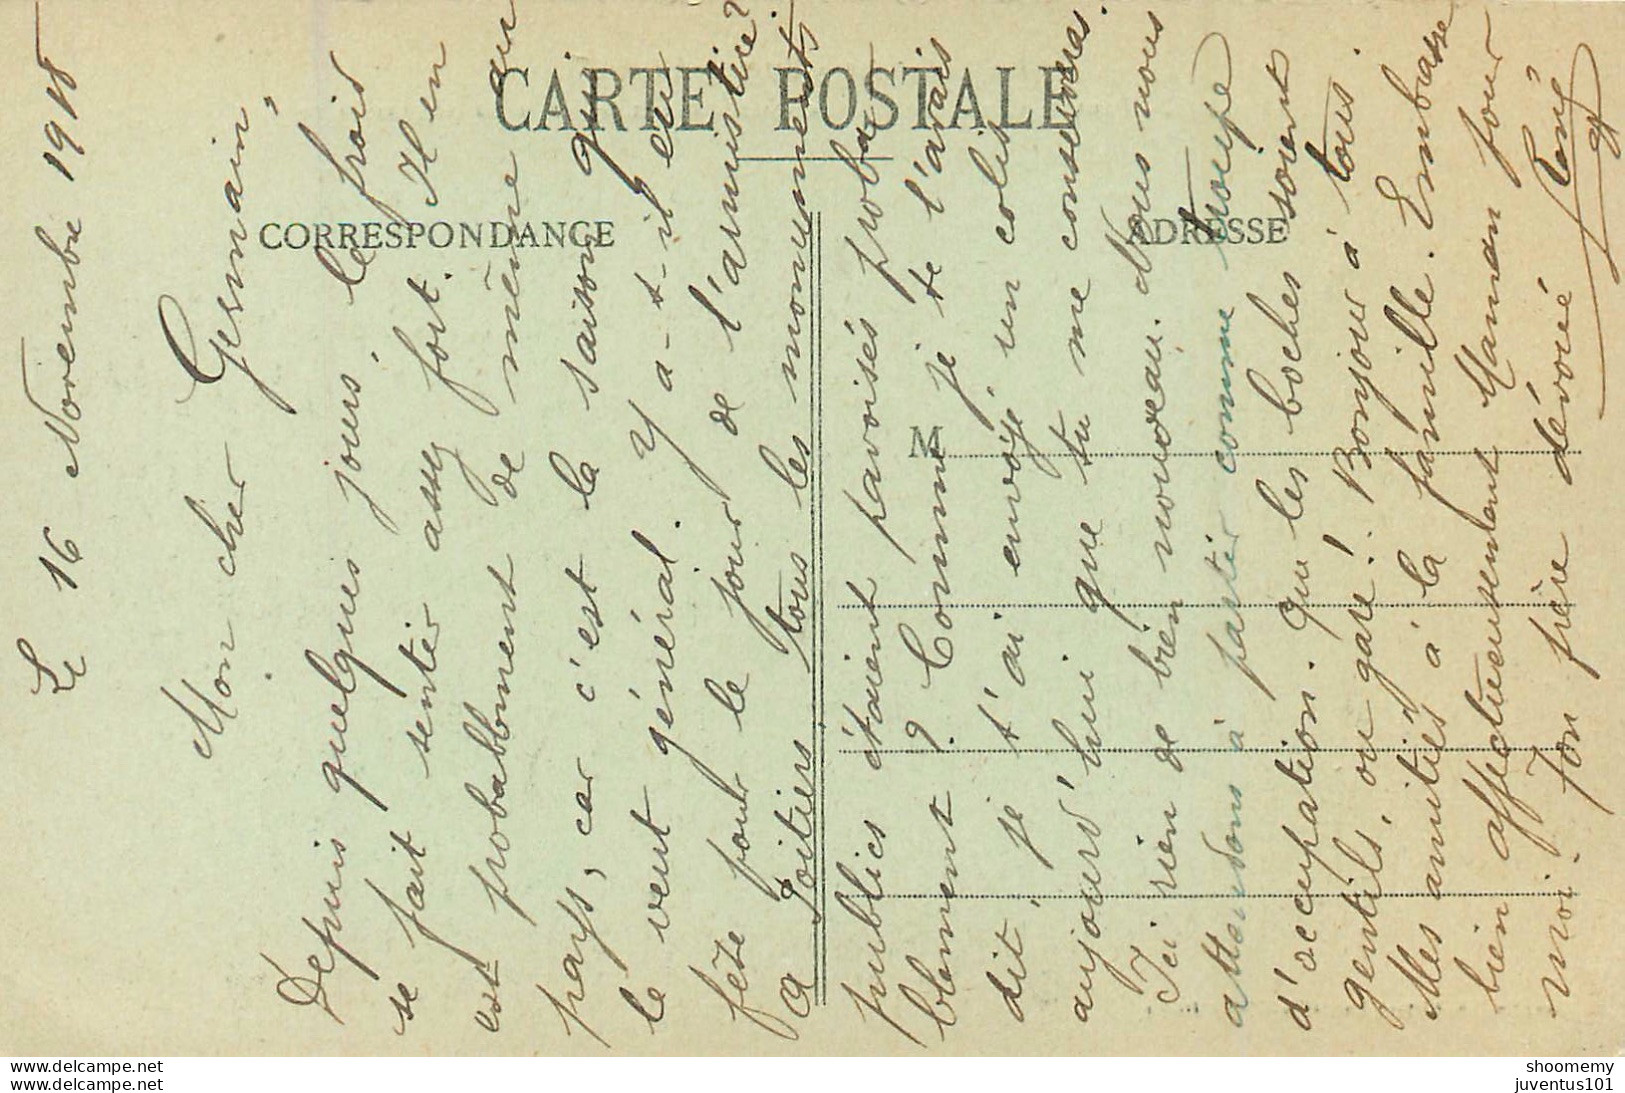 CARTE POSTALE
CORRESPONDANCE
ADRESSE
M
Le 16 Novembre 1918
Mon cher Germain,
Depuis quelques jours, le froid
se fait sentir assez fort. Il en
est probablement de même au
pays, car c'est la saison qui
le veut général. Y a-t-il eu
fête pour le jour de l'armistice?
A Poitiers tous les monuments
publics étaient pavoisés proba
blement ? Comme je te l'avais
dit, je t'ai envoyé un colis
aujourd'hui que tu me conserveras.
Ici rien de bien nouveau. Nous nous
attendons à partir comme troupe
d'occupation. Que les boches soient
gentils, ou gare! Bonjour à tous.
Mes amitiés à la famille. Embrasse
bien affectueusement Maman pour
moi. Ton frère dévoué René
shoomemy
juventus101